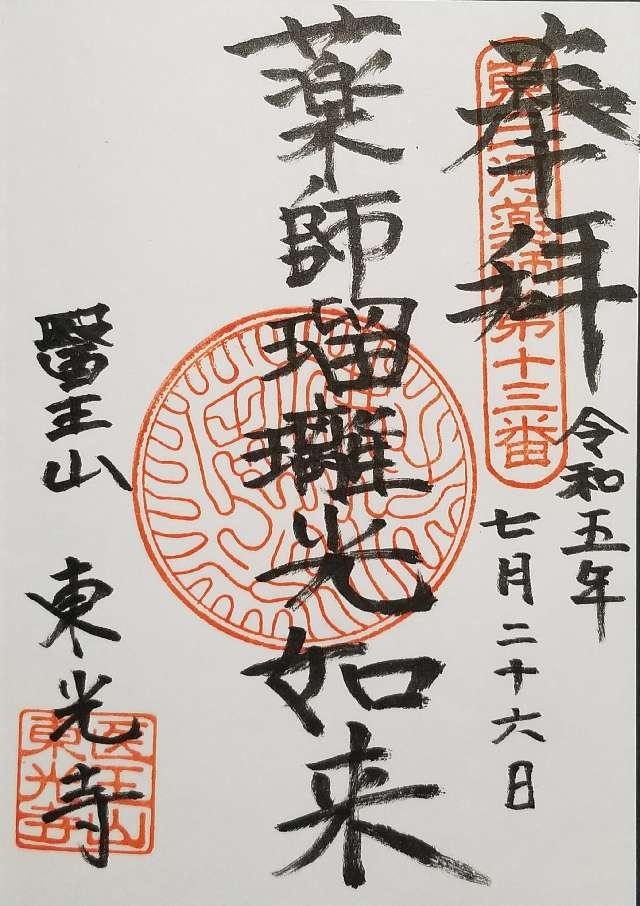 奉拝
東三河薬師第十三番
令和五年
七月二十六日
薬師瑠璃光如来
醫王山 東光寺
医王山
東光寺